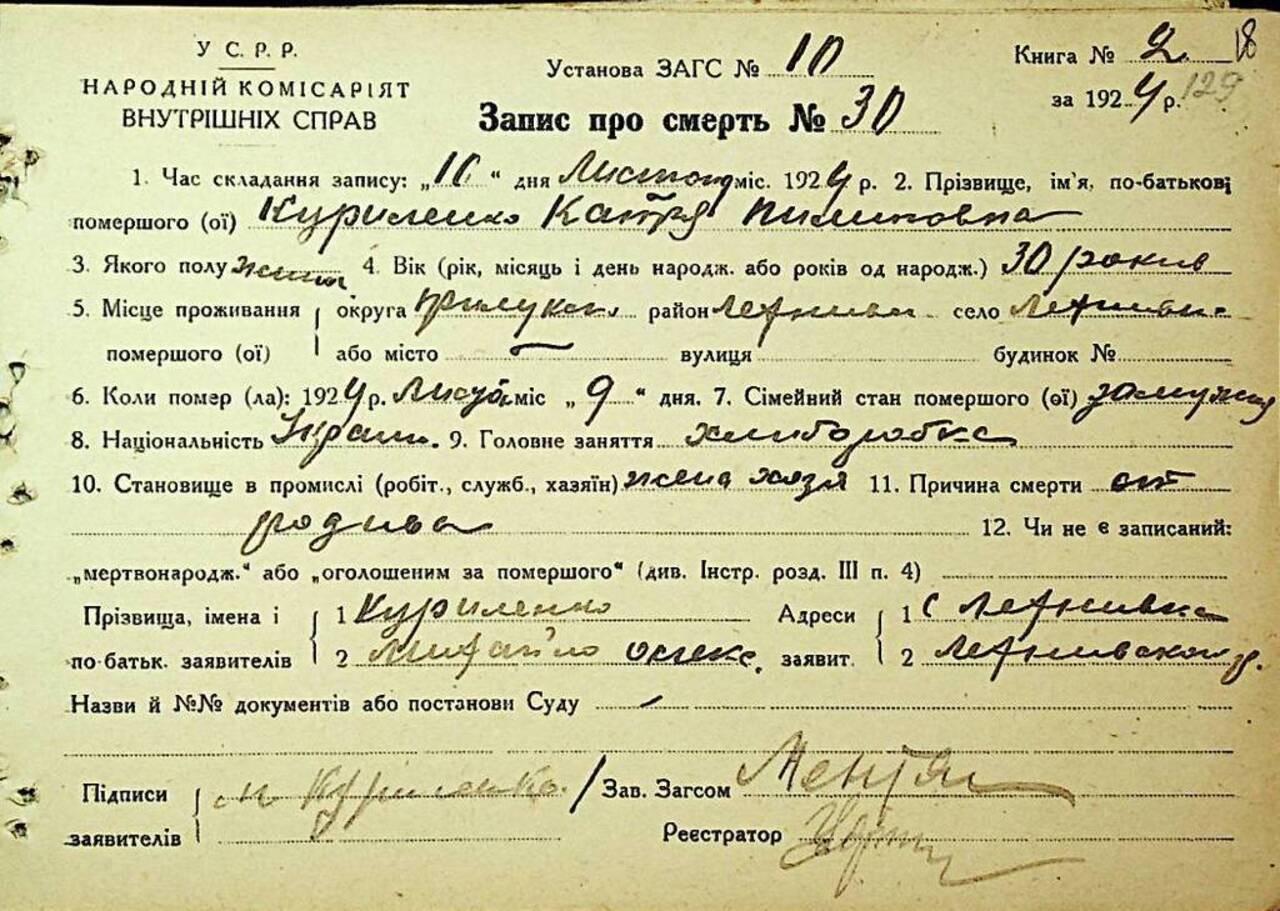 У С. Р. Р.
НАРОДНІЙ КОМІСАРІЯТ
ВНУТРІШНІХ СПРАВ
Установа ЗАГС № 10
Запис про смерть № 30
Книга № 2 18
за 1924 р. 129
1. Час складання запису: „ “ дня Листопад міс. 1924 р. 2. Прізвище, ім'я, по-батькові
помершого (ої) Куриленко Катря Пилиповна
3. Якого полу 4. Вік (рік, місяць і день народж. або років од народж.) 30 роκив
5. Місце проживання округа район село
помершого (ої) або місто — вулиця будинок №
6. Коли помер (ла): 1924 р. міс „ 9 “ дня. 7. Сімейний стан помершого (ої) замужня
8. Національність Украин. 9. Головне заняття хлиборобка
10. Становище в промислі (робіт., служб., хазяїн) жена хазя 11. Причина смерти от
родива 12. Чи не є записаний:
„мертвонародж.“ або „оголошеним за помершого“ (див. Інстр. розд. III п. 4)
Прізвища, імена і 1 Куриленко Адреси 1 с
по-батьк. заявителів 2 Михайло заявит. 2
Назви й №№ документів або постанови Суду —
Підписи М Куриленко Зав. Загсом
заявителів Реєстратор